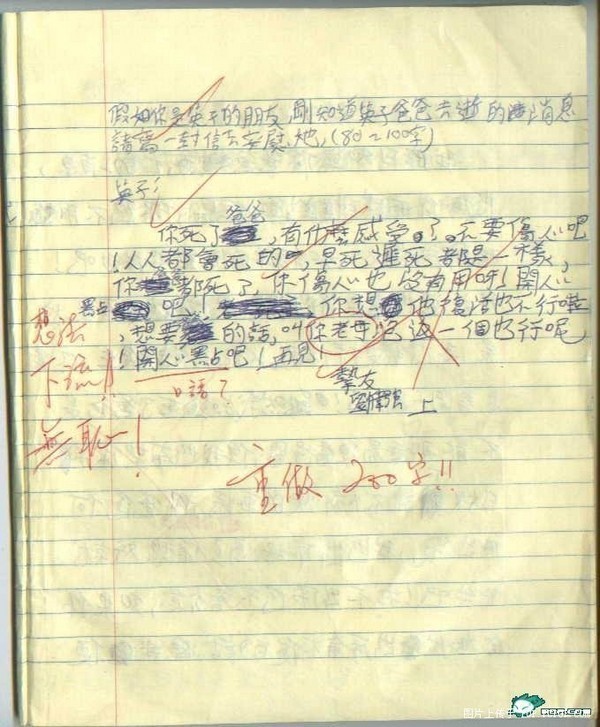 假如你是英子的朋友,剛知道英子爸爸去逝的消息
請寫一封信去安慰她,(80~100字)
英子:
你死了爸爸,有什麼感受。了。不要傷心吧
!人人都會死的,早死遲死都是一樣,
你都死了,你傷心也沒有用呀!開心
點吧!你想他復活也不行啦
,想要的話,叫你老母一個也行呢
!開心點吧!再見!
摯友
上
想法
下流!!
無恥!
口語?
重做 200字!!